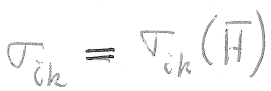 σ_{ik} = σ_{ik}(H̄)